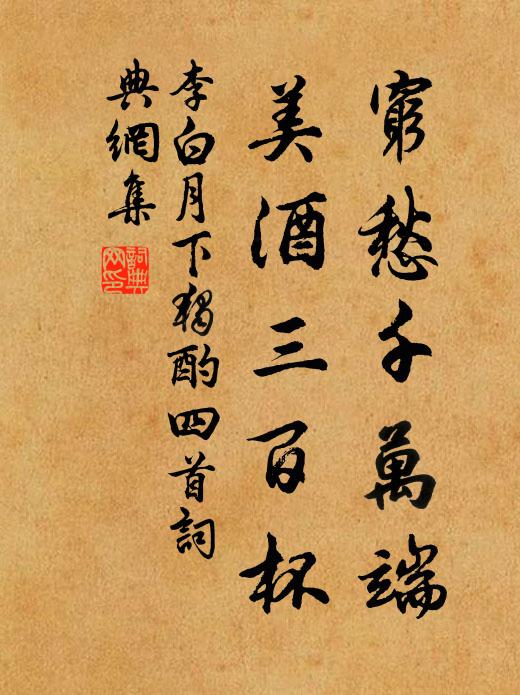 窮愁千萬端
美酒三百杯
李白月下獨酌四首詞
典網集
詞典網印